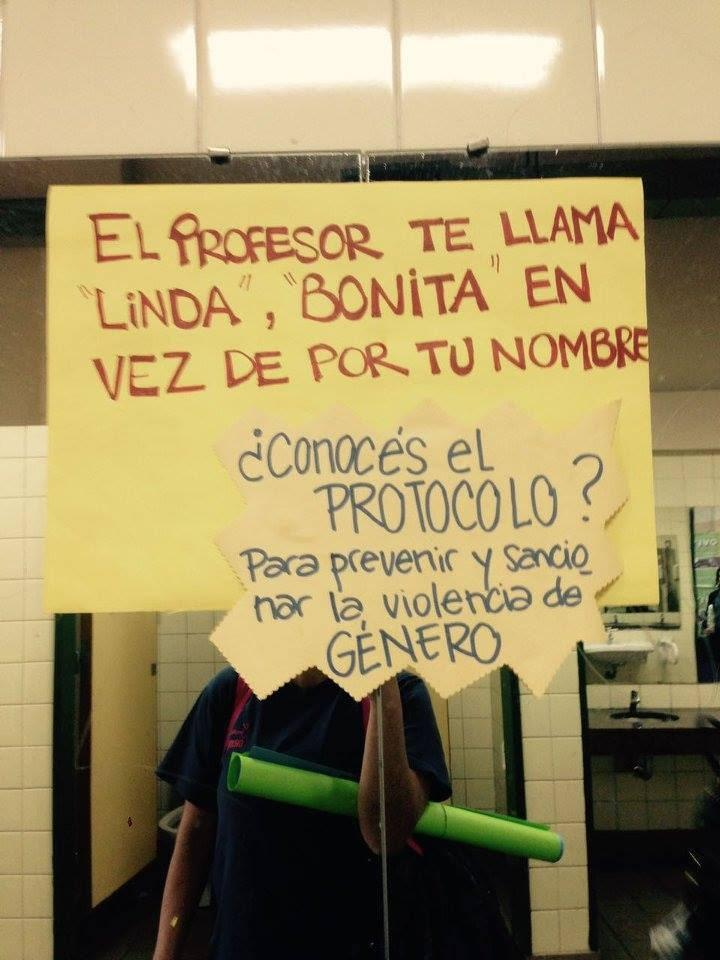 EL PROFESOR TE LLAMA
"LINDA", "BONITA" EN
VEZ DE POR TU NOMBRE
¿CONOCÉS EL
PROTOCOLO?
Para prevenir y sancio
nar la violencia de
GÉNERO